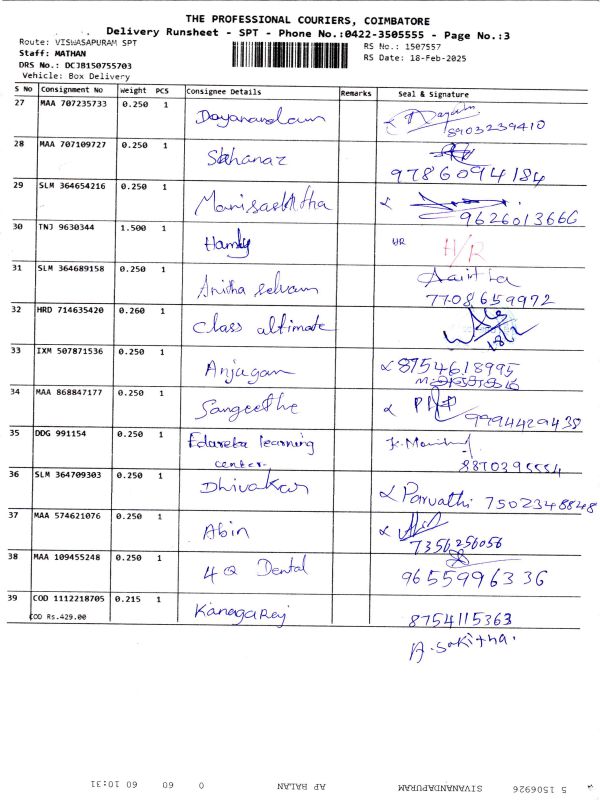 THE PROFESSIONAL COURIERS, COIMBATORE
Delivery Runsheet - SPT - Phone No.:0422-3505555 - Page No.:3
Route: VISWASAPURAM SPT
RS No.: 1507557
Staff: MATHAN
RS Date: 18-Feb-2025
DRS No.: DCJB150755703
Vehicle: Box Delivery
S No Consignment No Weight PCS Consignee Details Remarks Seal & Signature
27 MAA 707235733 0.250 1 Dayanandam
8903239410
28 MAA 707109727 0.250 1 Shahanaz
9786094184
29 SLM 364654216 0.250 1
9626013666
30 TNJ 9630344 1.500 1 HR H/R
31 SLM 364689158 0.250 1 Anitha selvam
7708659972
32 HRD 714635420 0.260 1 class altimate
18/2
33 IXM 507871536 0.250 1 Anjugam 8754618995
34 MAA 868847177 0.250 1 Sangeethe
9994429438
35 DDG 991154 0.250 1 Edureka learning
center
8870395554
36 SLM 364709303 0.250 1 Dhivakar Parvathi 7502348848
37 MAA 574621076 0.250 1 Abin
7356256056
38 MAA 109455248 0.250 1 4Q Dental 9655996336
39 COD 1112218705 0.215 1 Kanagaraj 8754115363
COD Rs.429.00
A. Sakitha.
5 1506926 SIVANANDAPURAM AP BALAN 0 60 60 10:31